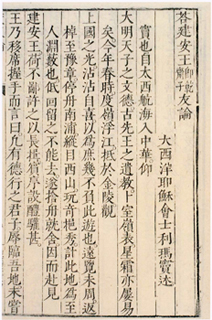 答建安王友論
大西洋耶穌會士利瑪竇述
竇也自太西航海入中華仰
大明天子之文德古先王之遺教卜室嶺表星霜亦屢易
矣今年春時度嶺浮江抵於金陵觀
上國之光沾沾自喜以為庶幾不負此遊也遠覽未周返
棹至豫章停舟南浦縱目西山玩奇挹秀計此地為至
人淵藪也低回留之不能去遂捨舟就舍因而赴見
建安王荷不鄙許之以長揖賓序設醴驩甚
王乃移席握手而言曰凡有德行之君子辱臨吾地未嘗